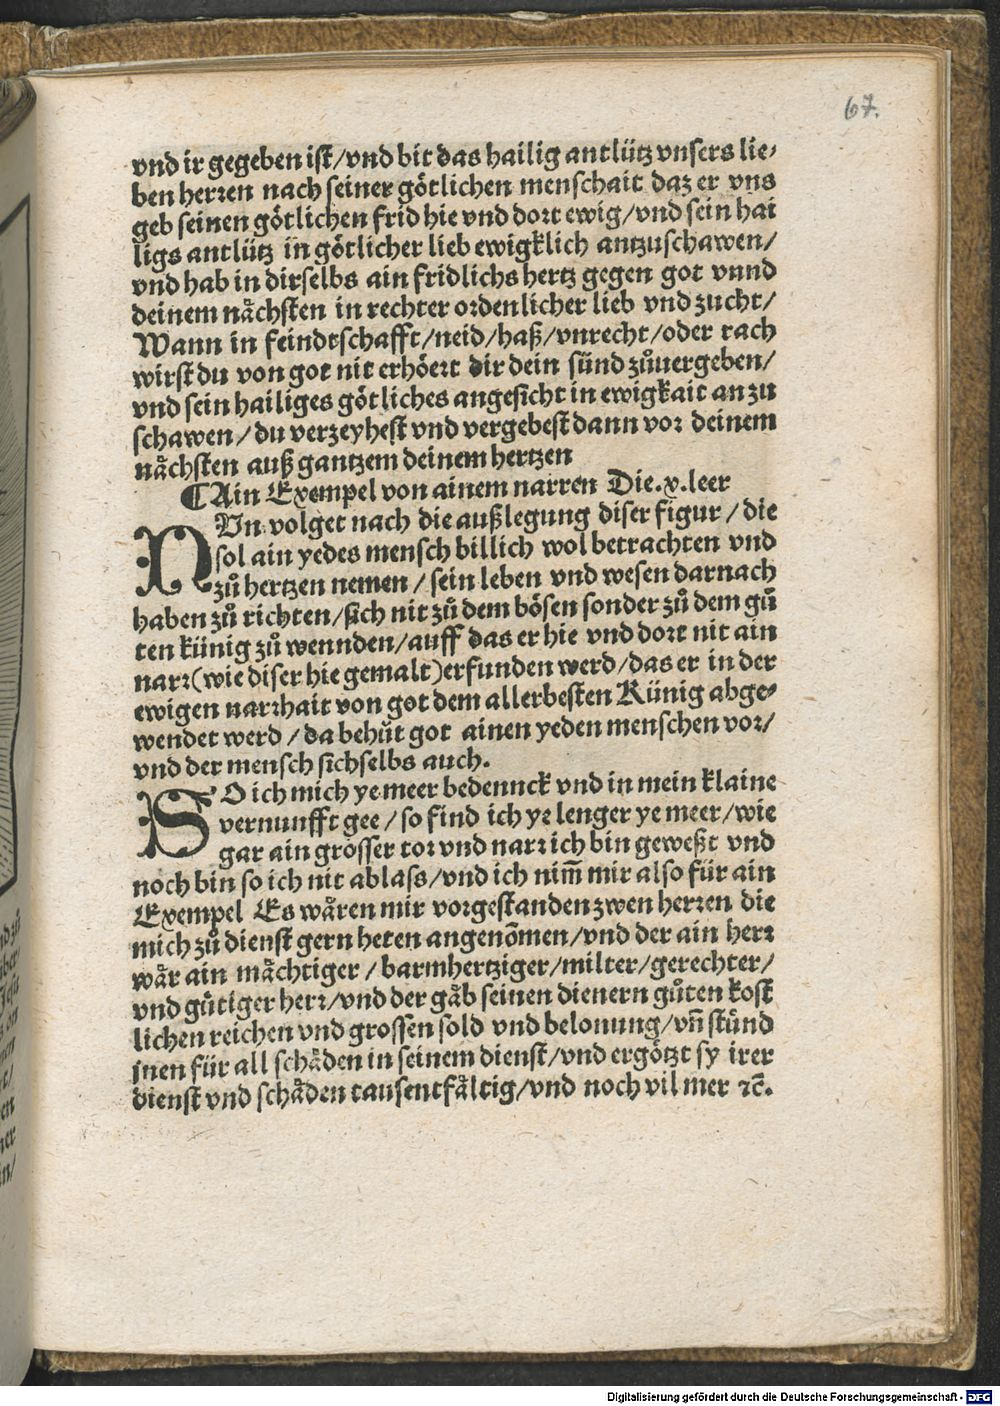 67.
vnd ir gegeben ist/vnd bit das hailig antlütz vnsers lie-
ben herꝛen nach seiner götlichen menschait daz er vns
geb seinen götlichen frid hie vnd doꝛt ewig/vnd sein hai
ligs antlütz in götlicher lieb ewigklich antzuschawen/
vnd hab in dirselbs ain fridlichs hertz gegen got vnnd
deinem nåchsten in rechter oꝛdenlicher lieb vnd zucht/
Wann in feindtschafft/neid/haß/vnrecht/oder rach
wirst du von got nit erhöeꝛt dir dein sünd zůuergeben/
vnd sein hailiges götliches angesicht in ewigkait an zu
schawen/du verzeyhest vnd vergebest dann voꝛ deinem
nåchsten auß gantzem deinem hertzen
¶Ain Exempel von ainem narren Die.x.leer
NVn volget nach die außlegung diser figur/die
sol ain yedes mensch billich wol betrachten vnd
zů hertzen nemen/sein leben vnd wesen darnach
haben zů richten/sich nit zů dem bösen sonder zů dem gů
ten künig zů wennden/auff das er hie vnd doꝛt nit ain
narꝛ(wie diser hie gemalt)erfunden werd/das er in der
ewigen narꝛhait von got dem allerbesten Künig abge-
wendet werd/da behůt got ainen yeden menschen voꝛ/
vnd der mensch sichselbs auch.
SO ich mich ye meer bedennck vnd in mein klaine
vernunfft gee/so find ich ye lenger ye meer/wie
gar ain grosser toꝛ vnd narꝛ ich bin geweßt vnd
noch bin so ich nit ablass/vnd ich nim̄ mir also für ain
Exempel Es wåren mir voꝛgestanden zwen herꝛen die
mich zů dienst gern heten angenōmen/vnd der ain herꝛ
wår ain måchtiger/barmhertziger/milter/gerechter/
vnd gůtiger herꝛ/vnd der gåb seinen dienern gůten kost
lichen reichen vnd grossen sold vnd belonung/vn̄ stůnd
jnen für all schåden in seinem dienst/vnd ergötzt sy irer
dienst vnd schåden tausentfåltig/vnd noch vil mer ⁊c̄.
Digitalisierung gefördert durch die Deutsche Forschungsgemeinschaft - DFG